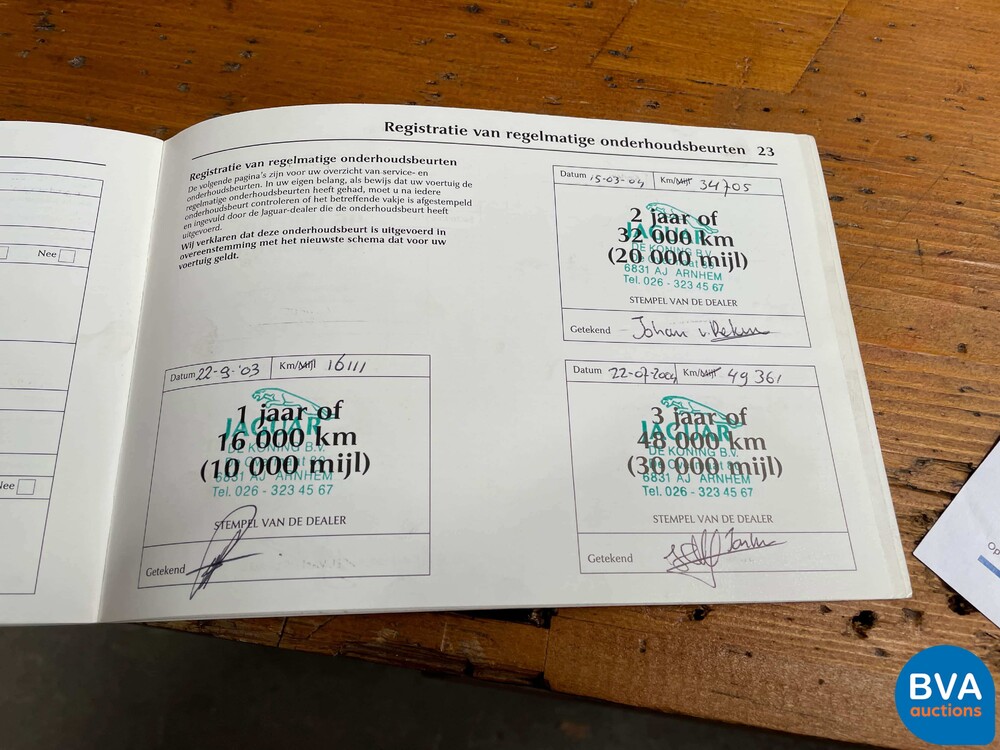 Registratie van regelmatige onderhoudsbeurten 23
Registratie van regelmatige onderhoudsbeurten
De volgende pagina's zijn voor uw overzicht van service- en
onderhoudsbeurten. In uw eigen belang, als bewijs dat uw voertuig de
regelmatige onderhoudsbeurten heeft gehad, moet u na iedere
onderhoudsbeurt controleren of het betreffende vakje is afgestempeld
en ingevuld door de Jaguar-dealer die de onderhoudsbeurt heeft
uitgevoerd.
Wij verklaren dat deze onderhoudsbeurt is uitgevoerd in
overeenstemming met het nieuwste schema dat voor uw
voertuig geldt.
Nee
Nee
Datum 22-9-'03 Km/Mijl 16111
1 jaar of
JAGUAR
16 000 km
DE KONING B.V.
(10 000 mijl)
6831 AJ ARNHEM
Tel. 026 - 323 45 67
STEMPEL VAN DE DEALER
Getekend
Datum 15-03-04 Km/Mijl 34705
2 jaar of
JAGUAR
32 000 km
DE KONING B.V.
(20 000 mijl)
6831 AJ ARNHEM
Tel. 026 - 323 45 67
STEMPEL VAN DE DEALER
Getekend Johan v.
Datum 22-07-2004 Km/Mijl 49361
3 jaar of
JAGUAR
48 000 km
DE KONING B.V.
(30 000 mijl)
6831 AJ ARNHEM
Tel. 026 - 323 45 67
STEMPEL VAN DE DEALER
Getekend
Op
BVA
auctions